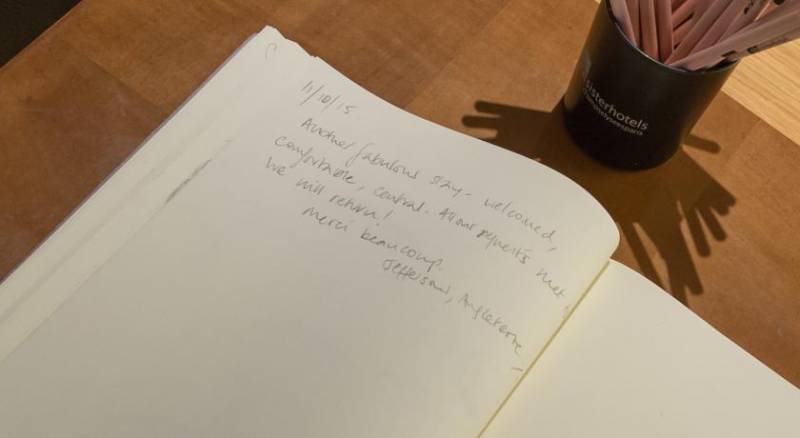 11/10/15
Another fabulous stay - welcomed,
comfortable, central. All our requests met
We will return!
Merci beaucoup.
Jeffersons, Angleterre
sisterhotels